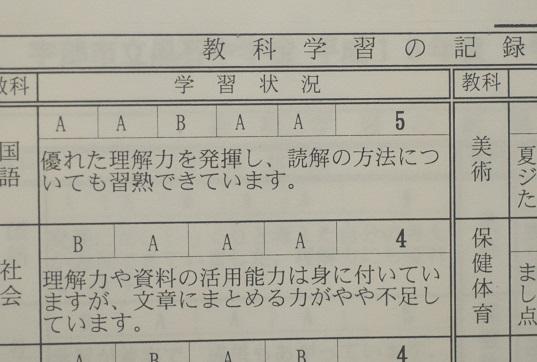 教科学習の記録
教科 学習状況 教科
国語 A A B A A 5 美術
優れた理解力を発揮し、読解の方法につ
いても習熟できています。
夏
ジ
た
社会 B A A A 4 保健体育
理解力や資料の活用能力は身に付いてい
ますが、文章にまとめる力がやや不足し
ています。
ま
し
点
A B A B 4